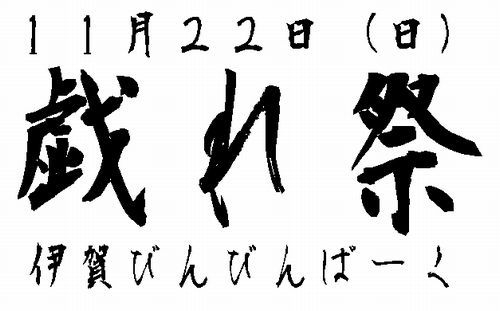 11月22日(日)
戯れ祭
伊賀びんびんばーく